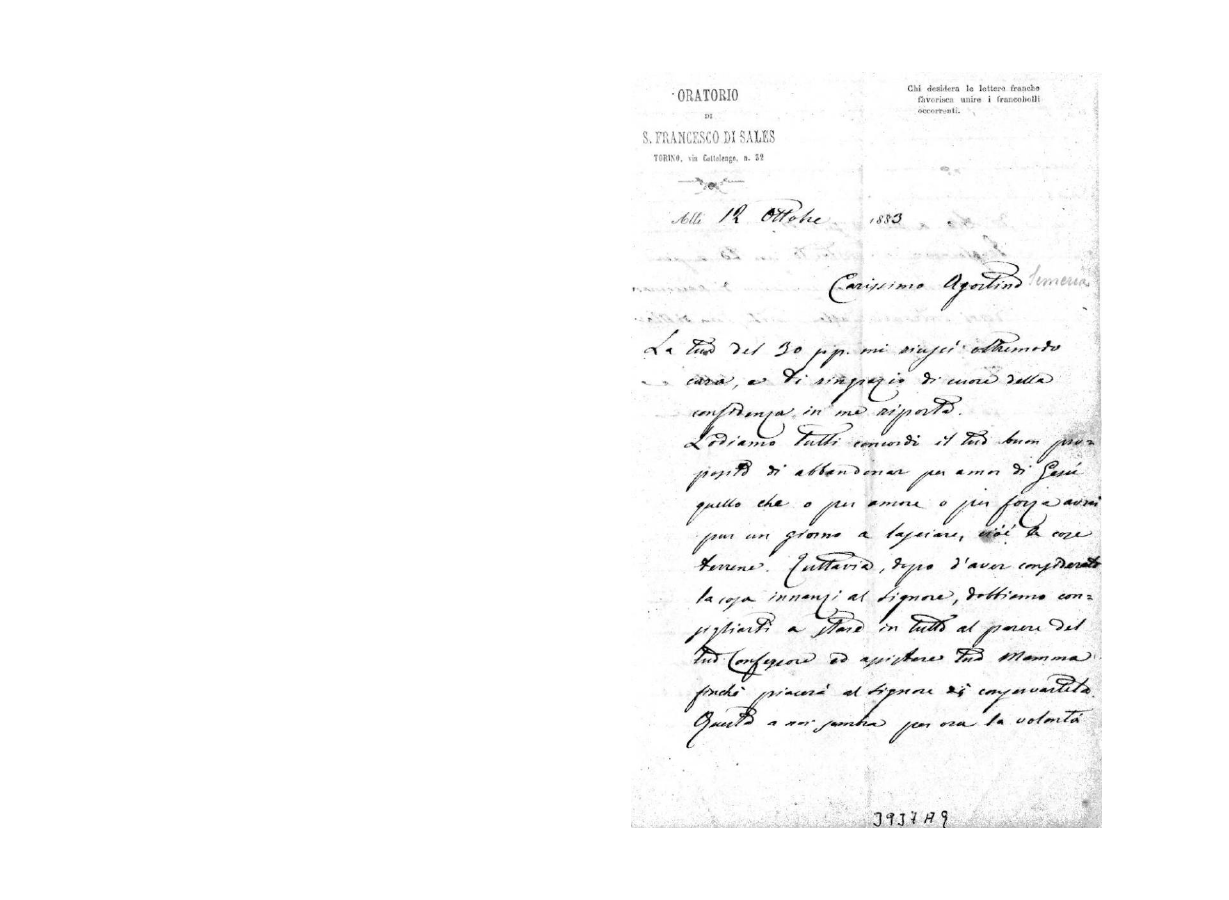 ORATORIO
DI
S. FRANCESCO DI SALES
TORINO, via Cottolengo, n. 32
Chi desidera le lettere franche
favorisca unire i francobolli
occorrenti.
Alli 12 Ottobre 1883
Carissimo Agostino Semeria
La tua del 30 p.p. mi riuscì oltremodo
cara, e ti ringrazio di cuore della
confidenza in me riposta.
Lodiamo tutti concordi il tuo buon pro=
posito di abbandonar per amor di Gesù
quello che o per amore o per forza avrai
pur un giorno a lasciare, cioè le cose
terrene. Tuttavia, dopo d'aver considerato
la cosa innanzi al Signore, dobbiamo con=
sigliarti a stare in tutto al parere del
tuo Confessore ed assistere tua Mamma
finchè piacerà al Signore di conservartela.
Questa a noi sembra per ora la volontà
3937 A 9